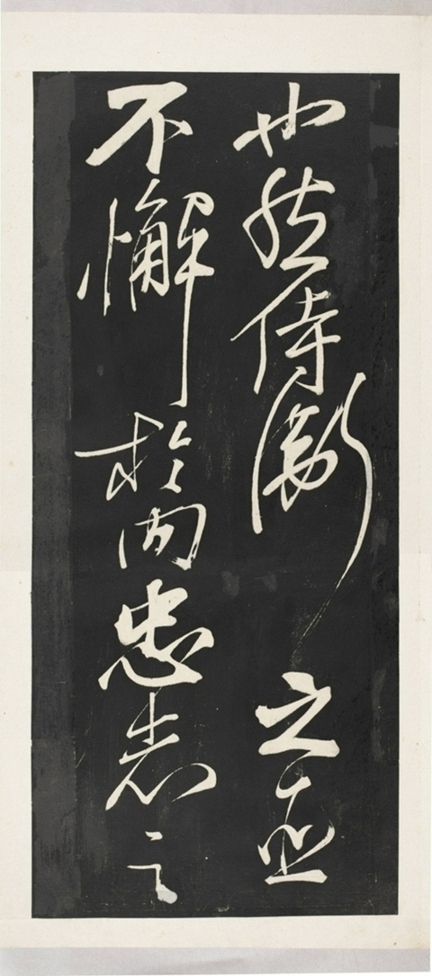 也然侍衛之臣
不懈於内忠志之